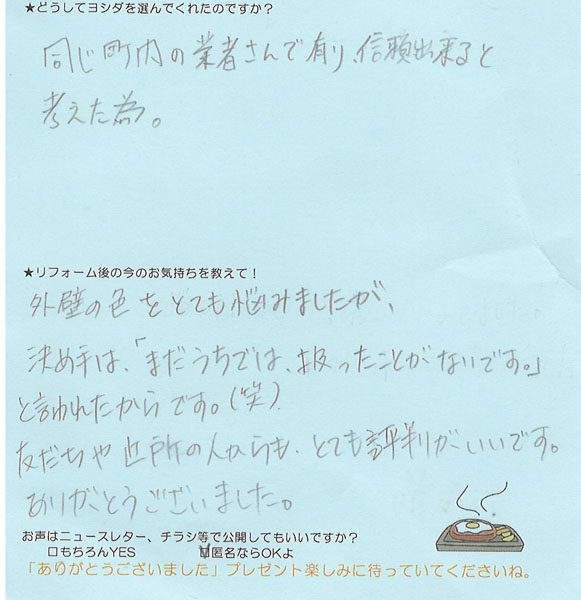 ★どうしてヨシダを選んでくれたのですか？
同じ町内の業者さんで有り、信頼出来ると
考えた為。
★リフォーム後の今のお気持ちを教えて！
外壁の色をとても悩みましたが、
決め手は、「まだうちでは、扱ったことがないです。」
と言われたからです。(笑)
友だちや近所の人からも、とても評判がいいです。
ありがとうございました。
お声はニュースレター、チラシ等で公開してもいいですか？
□もちろんYES ☑匿名ならOKよ
「ありがとうございました」プレゼント楽しみに待っていてくださいね。